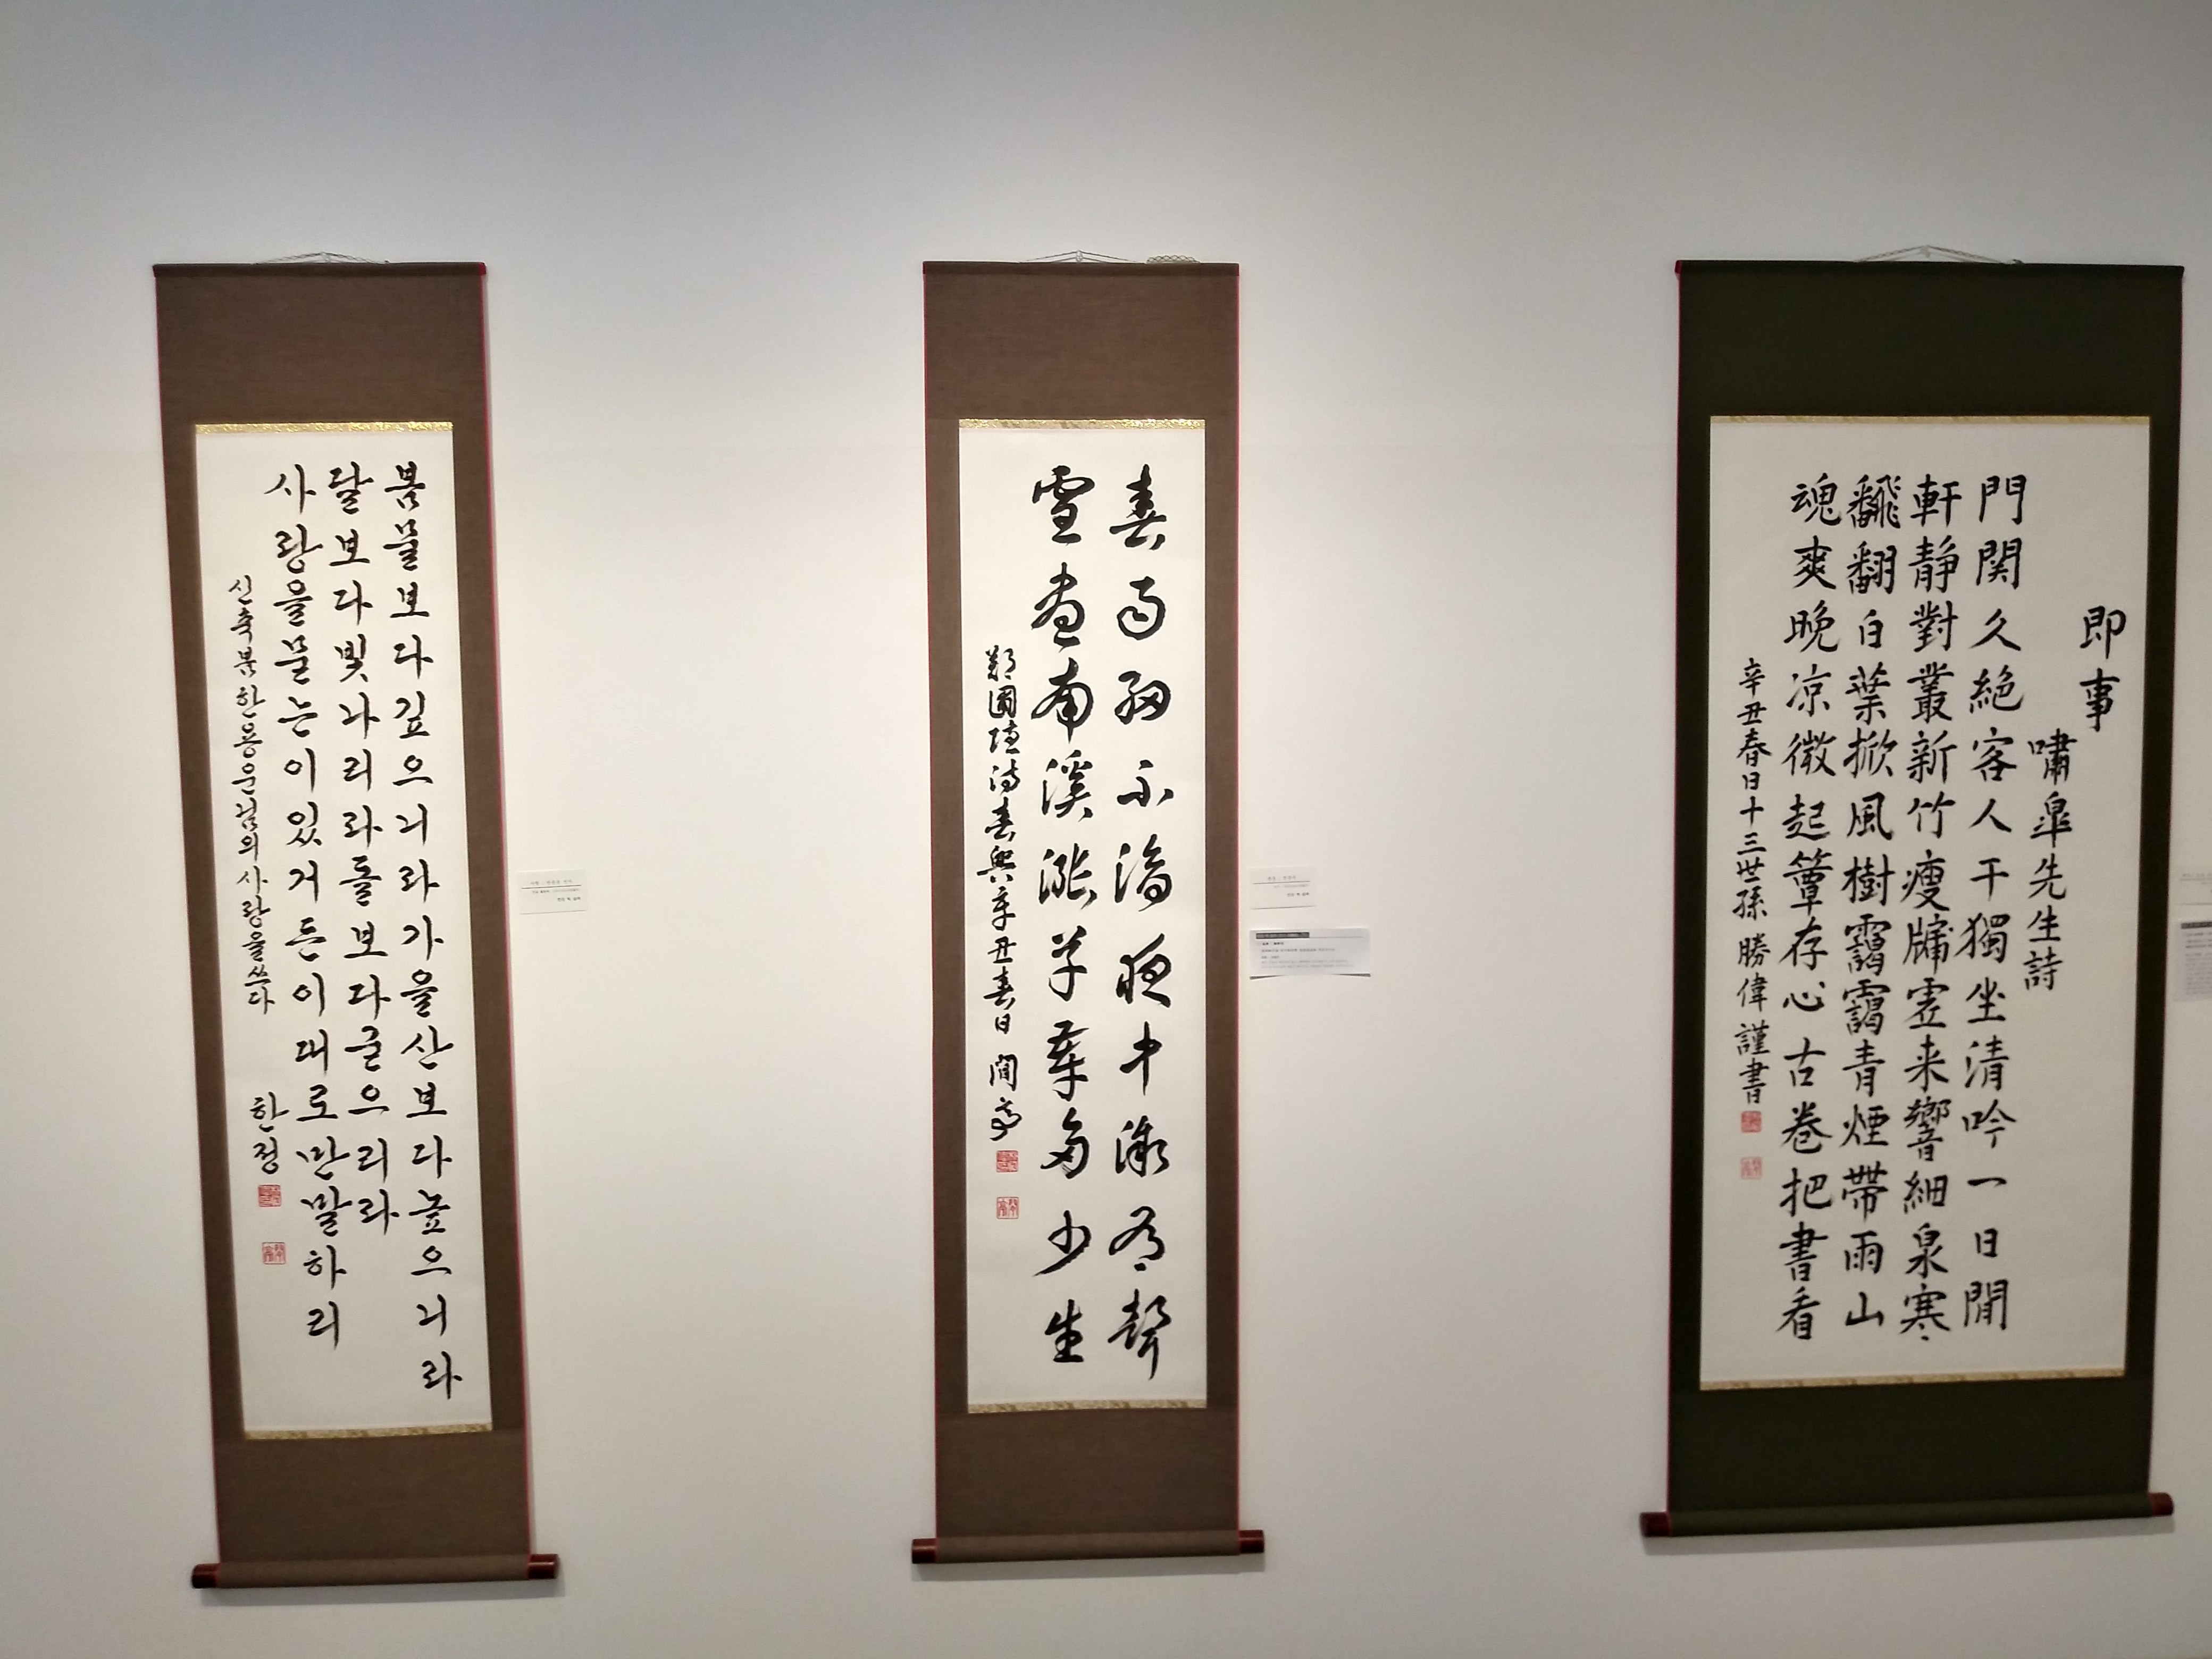 봄물보다깊으니라가을산보다높으니라
달보다빛나리라돌보다굳으리라
사랑을묻는이있거든이대로만말하리
신축봄한용운님의사랑을쓰다
한정
春雨細不滴夜中微有聲
雪盡南溪漲草芽多少生
鄭圃隱詩春興辛丑春日 閒亭
即事
嘯皐先生詩
門関久絶客人干獨坐清吟一日閒
軒静對叢新竹瘦牖虚来響細泉寒
飜翻白葉掀風樹靄靄青煙帶雨山
魂爽晩凉微起簟存心古巻把書看
辛丑春日十三世孫 勝偉 謹書